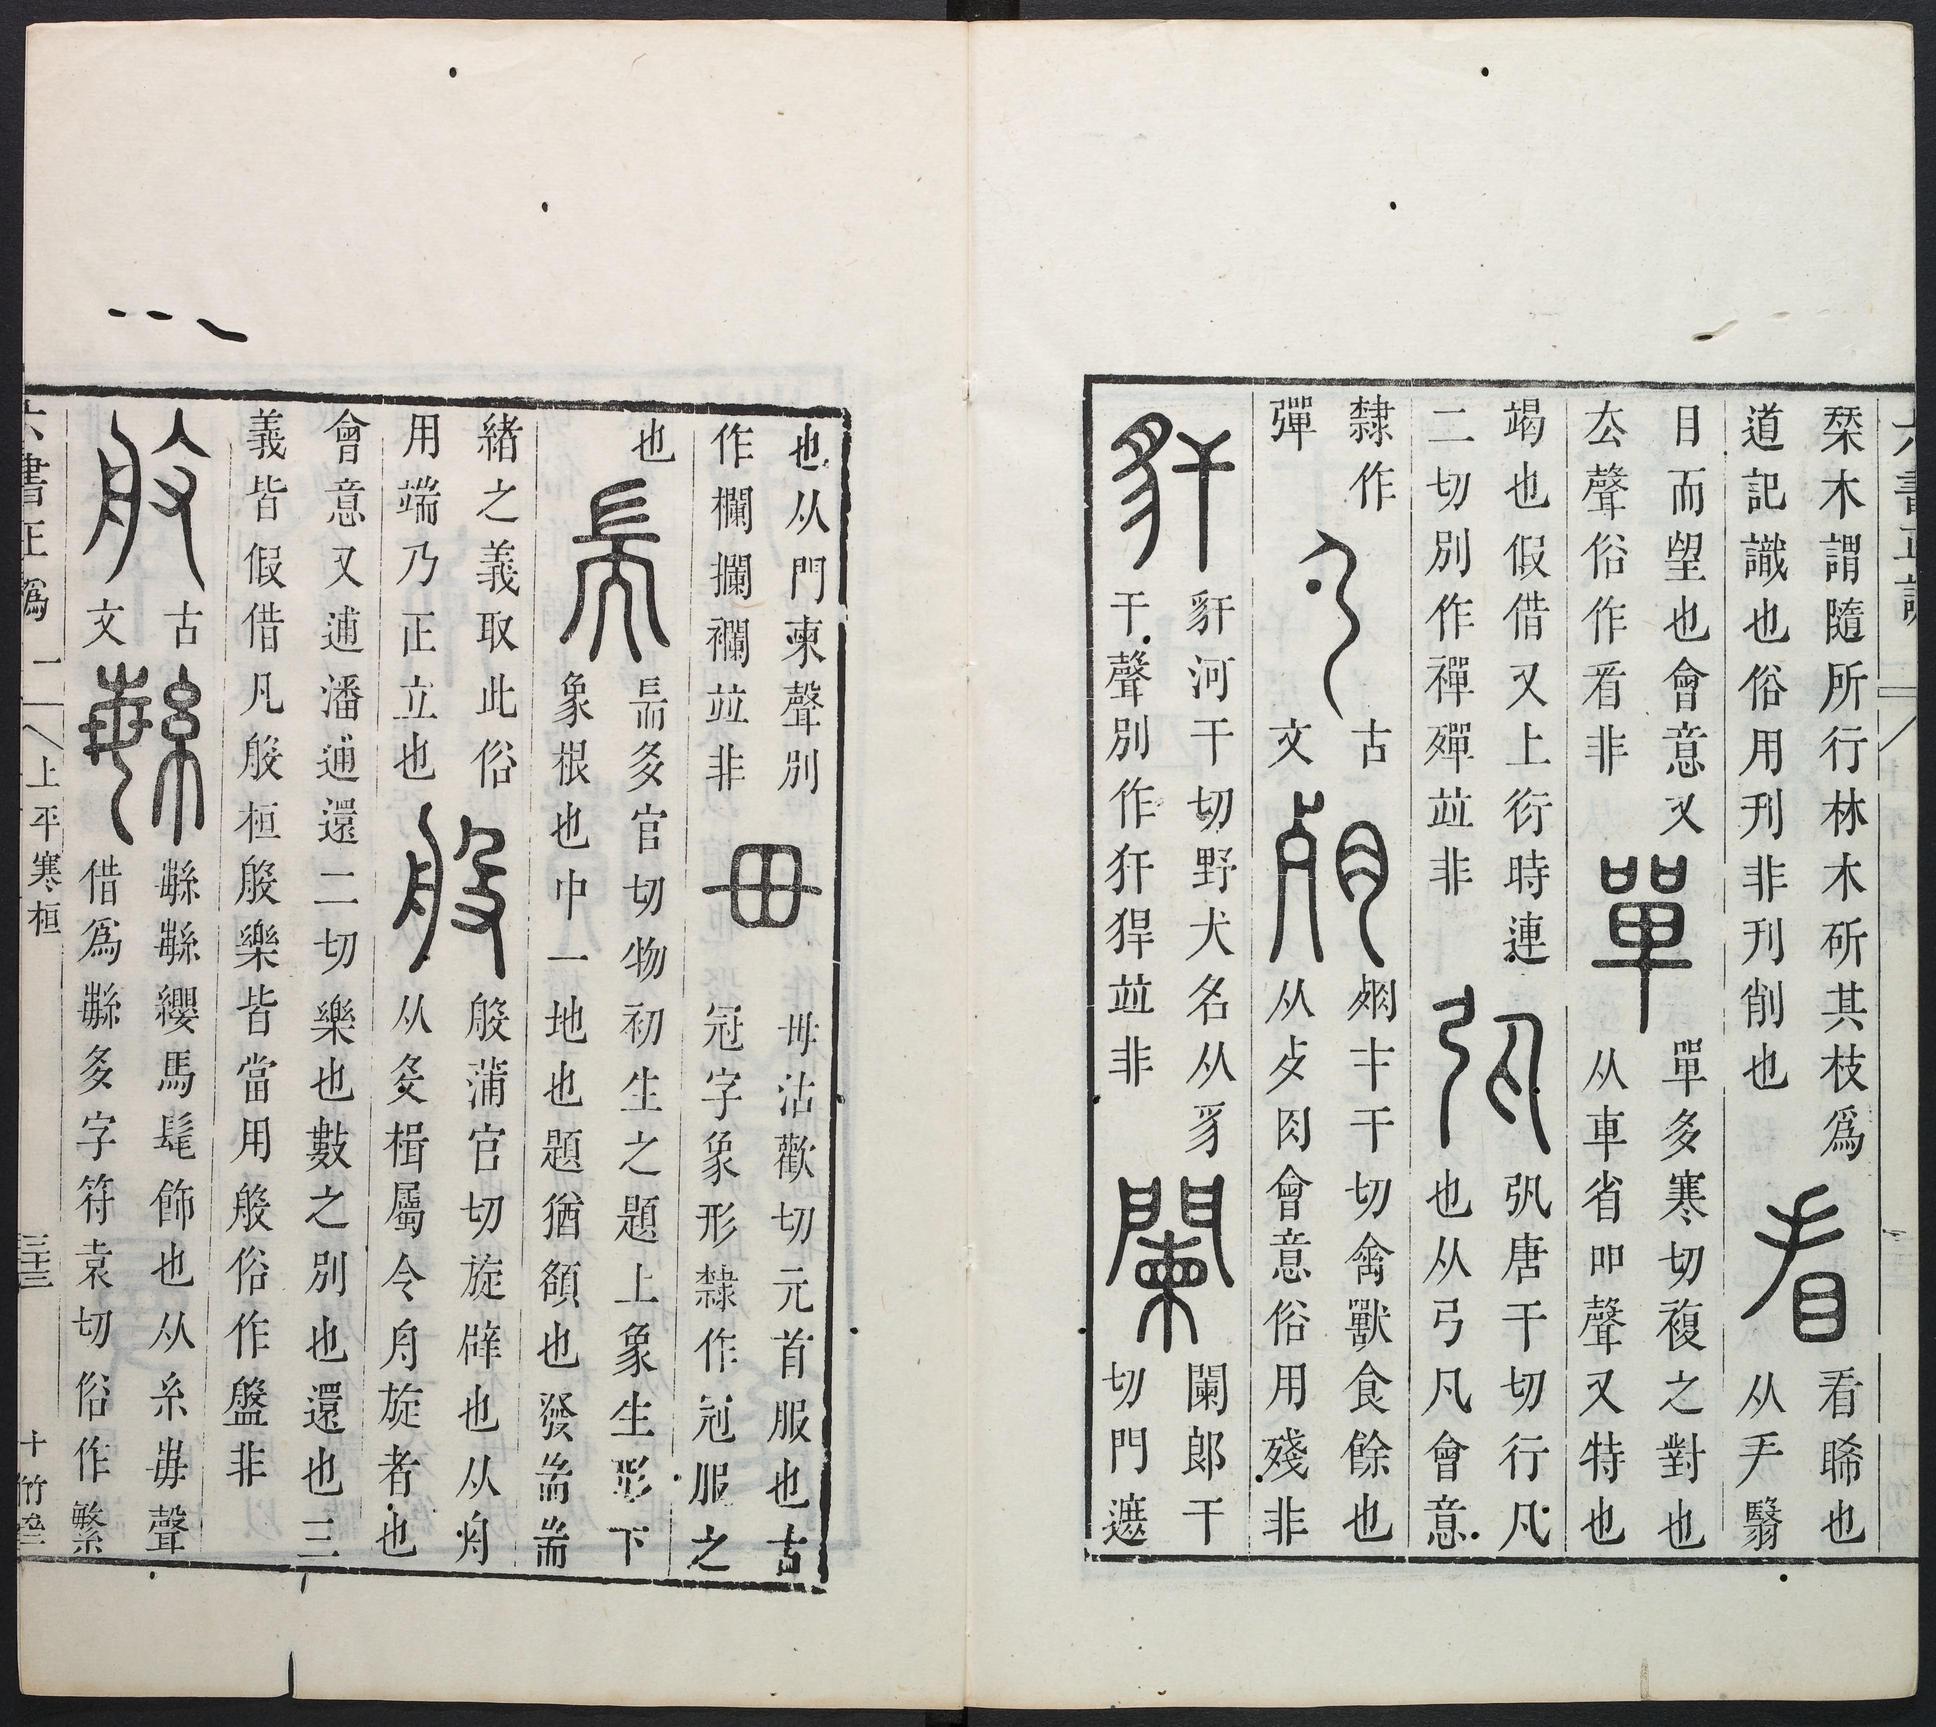 六書正譌
栞木謂隨所行林木斫其枝爲
道記識也俗用刋非刋削也
看
看睎也
从手翳
目而望也會意又
厺聲俗作㸔非
單
單多寒切複之對也
从車省吅聲又特也
竭也假借又上衍時連
二切別作禪殫竝非
弙唐干切行凡
也从弓凡會意
隸作
彈
古
文
干切禽獸食餘也
从歺肉會意俗用殘非
豻
豻河干切野犬名从豸
干聲別作犴猂竝非
闌
闌郎干
切門遮
也从門柬聲別
作欄攔襴竝非
毌
毌沽歡切元首服也古
冠字象形隸作冠服之
也
耑
耑多官切物初生之題上象生形下
象根也中一地也題猶頟也發耑耑
緒之義取此俗
用端乃正立也
般
般蒲官切旋辟也从舟
从殳楫屬令舟旋者也
會意又逋潘逋還二切樂也數之別也還也三
義皆假借凡般桓般樂皆當用般俗作盤非
古
文
緐
緐緐纓馬髦飾也从糸每聲
借爲緐多字符袁切俗作繁
六書正譌
一
上平寒桓
三十三
十竹齋